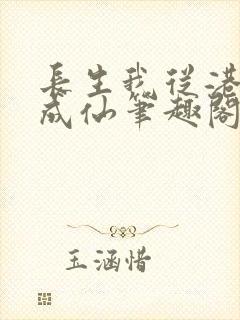 長生我從港
成仙筆趣閣
玉涵惜